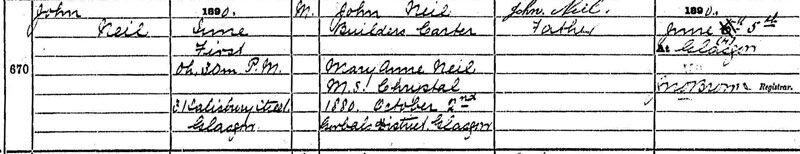 670
John
Neil
1890.
June
First
0h. 30m P.M.
31 Salisbury Street
Glasgow
M.
John Neil
Builders Carter
Mary Anne Neil
M.S. Christal
1880. October 2nd
Gorbals District, Glasgow
John Neil
Father
1890.
June 5th
At Glasgow
Registrar.